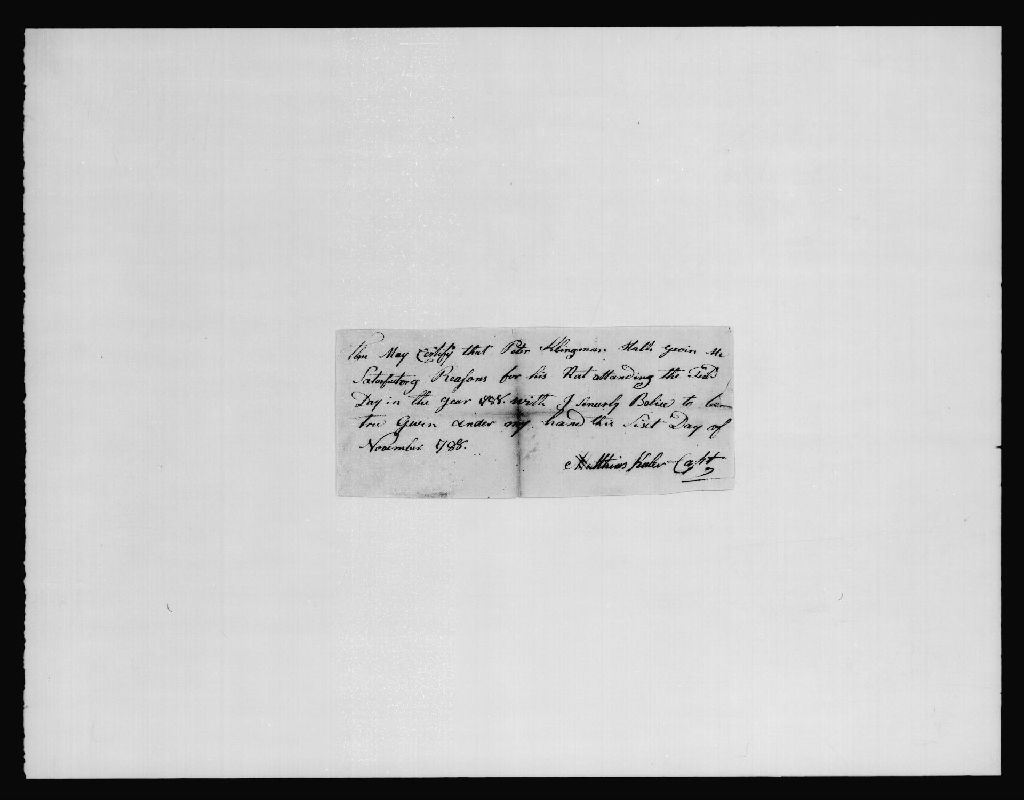 this May Certify that Peter Klingman Hath gevin Me
Satesfactorg Reasons for his Not attanding the Feld
Day in the year 88. with I sencerly Belive to bee
true Given under my hand this Sixt Day of
November 1788.
Matthias Capt